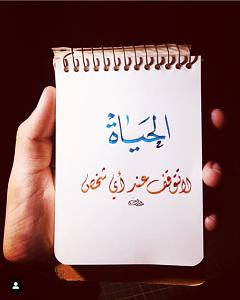 الحياة
لا تتوقف عند أي شخص